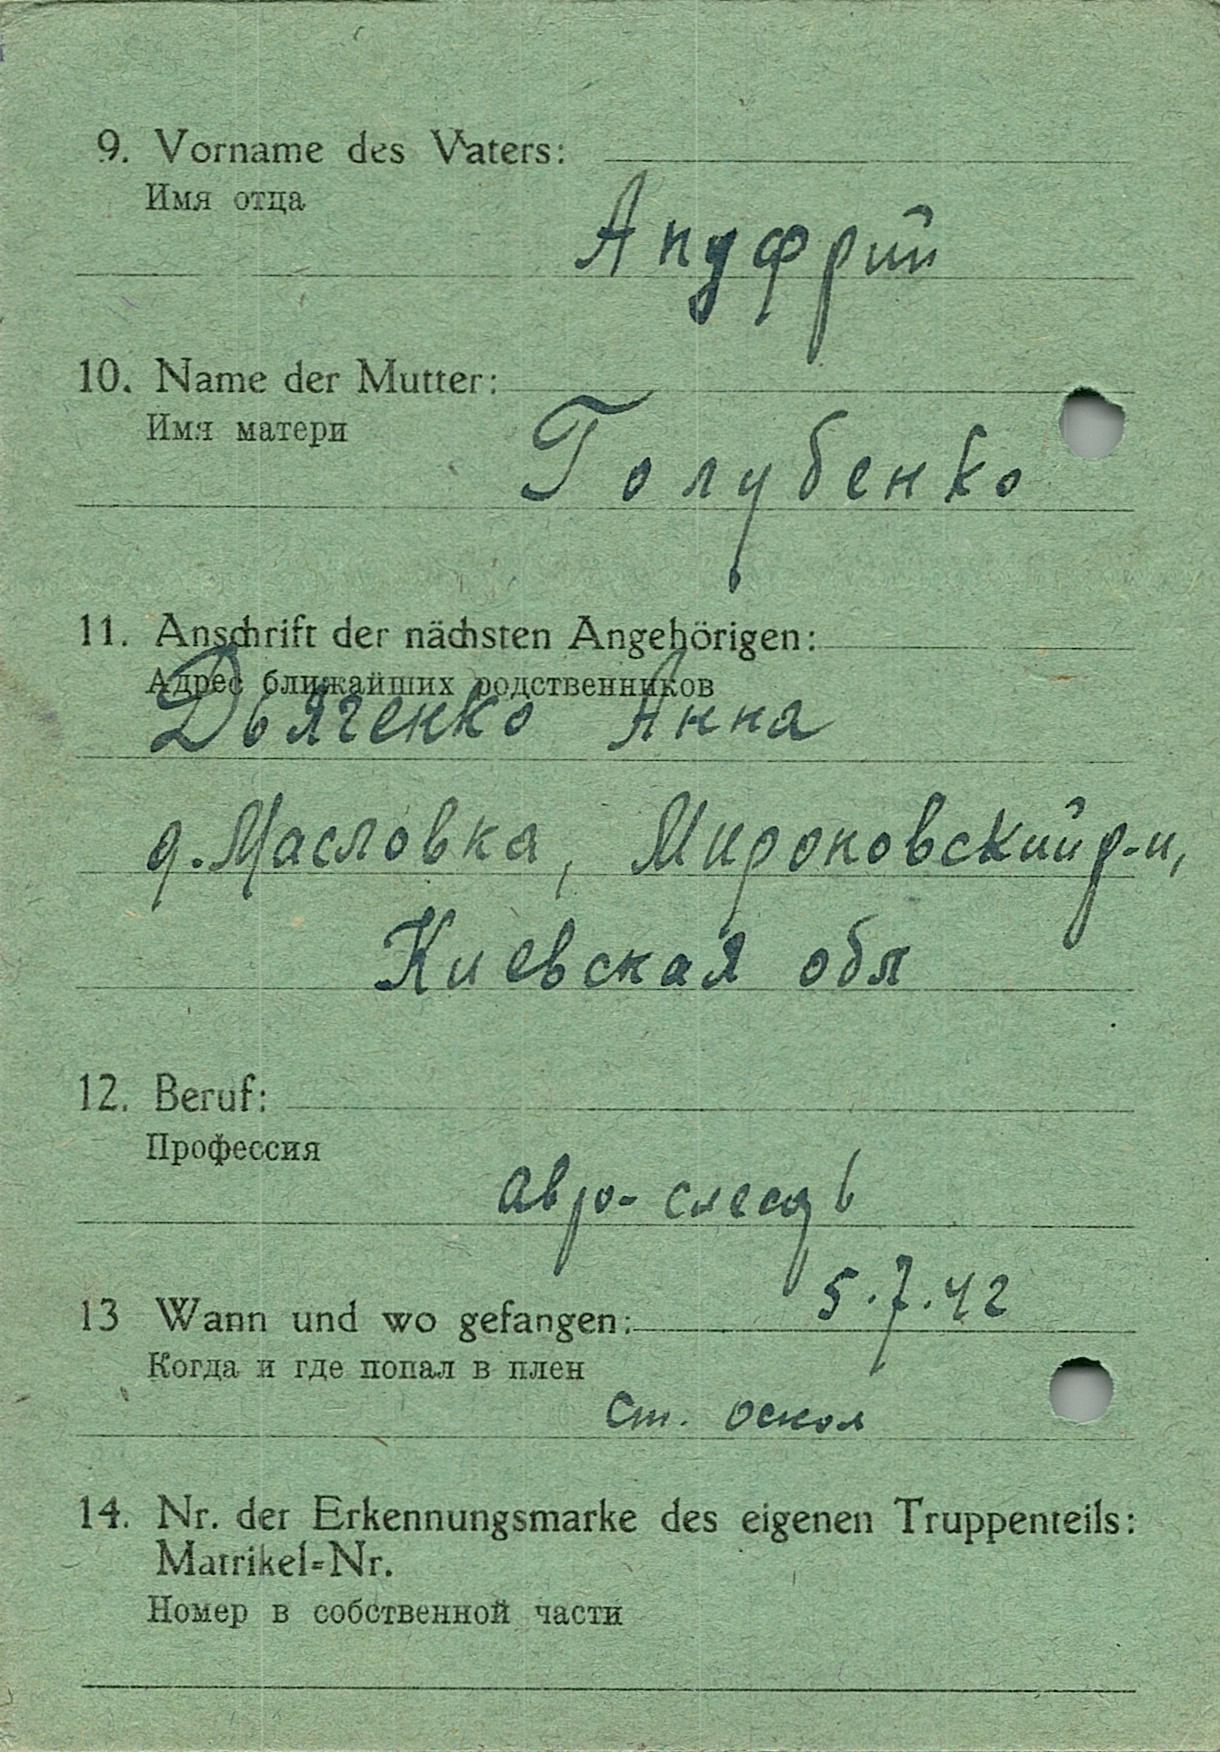 9. Vorname des Vaters:
Имя отца
Ануфрий
10. Name der Mutter:
Имя матери
Голубенко
11. Anschrift der nächsten Angehörigen:
Адрес ближайших родственников
Дьяченко Анна
д. Масловка, Мироновский р-н,
Киевская обл
12. Beruf:
Профессия
5.7.42
13 Wann und wo gefangen:
Когда и где попал в плен
Ст. Оскол
14. Nr. der Erkennungsmarke des eigenen Truppenteils:
Matrikel=Nr.
Номер в собственной части